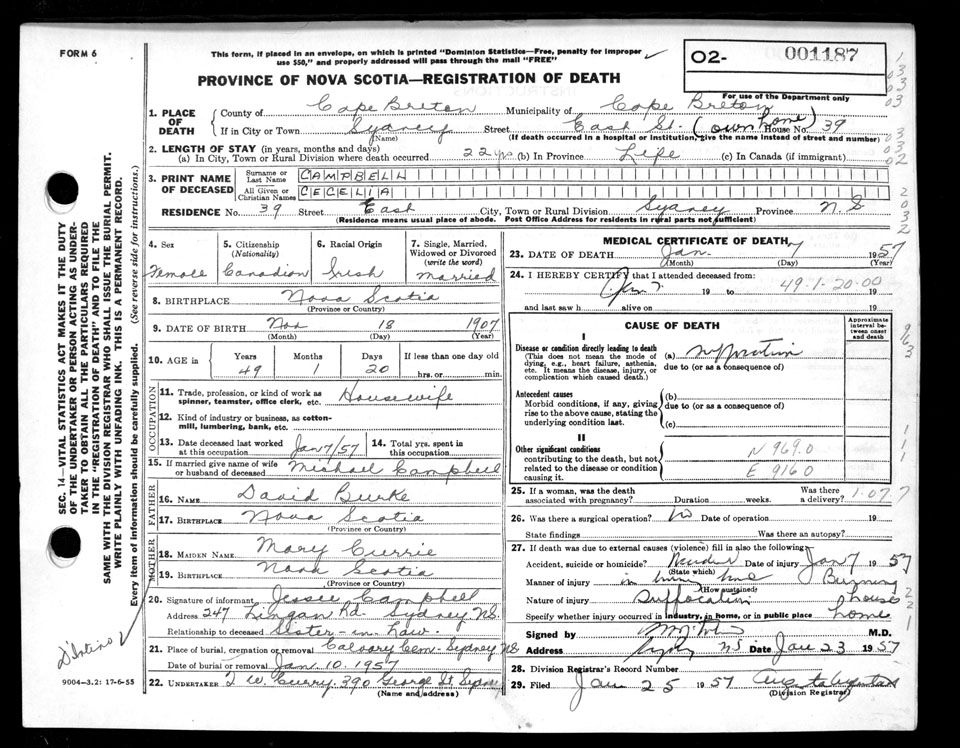 FORM 6
This form, if placed in an envelope, on which is printed "Dominion Statistics—Free, penalty for improper
use $50," and properly addressed will pass through the mail "FREE"
O2- 001187
For use of the Department only
PROVINCE OF NOVA SCOTIA—REGISTRATION OF DEATH
1. PLACE OF DEATH
County of Cape Breton Municipality of Cape Breton
If in City or Town Sydney Street East St. (own home) House No. 39
(Name) (If death occurred in a hospital or institution, give the name instead of street and number)
2. LENGTH OF STAY (in years, months and days)
(a) In City, Town or Rural Division where death occurred 22 yrs (b) In Province Life (c) In Canada (if immigrant)
3. PRINT NAME OF DECEASED
Surname or Last Name CAMPBELL
All Given or Christian Names CECELIA
RESIDENCE No. 39 Street East City, Town or Rural Division Sydney Province N.S
(Residence means usual place of abode. Post Office Address for residents in rural parts not sufficient)
4. Sex Female
5. Citizenship (Nationality) Canadian
6. Racial Origin Irish
7. Single, Married, Widowed or Divorced (write the word) Married
8. BIRTHPLACE Nova Scotia
(Province or Country)
9. DATE OF BIRTH Nov 18 1907
(Month) (Day) (Year)
10. AGE in Years Months Days If less than one day old
49 1 20 hrs. or min.
OCCUPATION
11. Trade, profession, or kind of work as spinner, teamster, office clerk, etc. Housewife
12. Kind of industry or business, as cotton-mill, lumbering, bank, etc.
13. Date deceased last worked at this occupation Jan 7/57
14. Total yrs. spent in this occupation
15. If married give name of wife or husband of deceased Michael Campbell
FATHER
16. NAME David Burke
17. BIRTHPLACE Nova Scotia
(Province or Country)
MOTHER
18. MAIDEN NAME Mary Currie
19. BIRTHPLACE Nova Scotia
(Province or Country)
20. Signature of informant Jessie Campbell
Address 247 Lingan Rd. Sydney NS.
Relationship to deceased Sister-in-law.
21. Place of burial, cremation or removal Calvary Cem - Sydney NS
Date of burial or removal Jan. 10. 1957
22. UNDERTAKER T W Curry. 390 George St. Sydney
(Name and address)
MEDICAL CERTIFICATE OF DEATH
23. DATE OF DEATH Jan. 7 1957
(Month) (Day) (Year)
24. I HEREBY CERTIFY that I attended deceased from:
19 to 49.1-20.00 19
and last saw h alive on 19
CAUSE OF DEATH
Approximate interval between onset and death
I
Disease or condition directly leading to death
(This does not mean the mode of dying, e.g., heart failure, asthenia, etc. It means the disease, injury, or complication which caused death.)
(a)
due to (or as a consequence of)
Antecedent causes
Morbid conditions, if any, giving rise to the above cause, stating the underlying condition last.
(b)
due to (or as a consequence of)
(c)
II
Other significant conditions
contributing to the death, but not related to the disease or condition causing it.
N 969.0
E 916.0
25. If a woman, was the death associated with pregnancy? Duration weeks. Was there a delivery? 1.07 7
26. Was there a surgical operation? No Date of operation 19
State findings Was there an autopsy?
27. If death was due to external causes (violence) fill in also the following:
Accident, suicide or homicide? Accident Date of injury Jan 7 1957
(State which)
Manner of injury Burning
(How sustained)
Nature of injury Suffocation house
Specify whether injury occurred in industry, in home, or in public place home
Signed by M.D.
Address Sydney NS Date Jan 23 1957
28. Division Registrar's Record Number
29. Filed Jan 25 1957
(Division Registrar)
SEC. 14—VITAL STATISTICS ACT MAKES IT THE DUTY
OF THE UNDERTAKER OR PERSON ACTING AS UNDER-
TAKER TO OBTAIN ALL THE PARTICULARS REQUIRED
IN THE "REGISTRATION OF DEATH" AND TO FILE THE
SAME WITH THE DIVISION REGISTRAR WHO SHALL ISSUE THE BURIAL PERMIT.
WRITE PLAINLY WITH UNFADING INK. THIS IS A PERMANENT RECORD.
Every item of information should be carefully supplied. (See reverse side for instructions.)
9004-3.2: 17-6-55